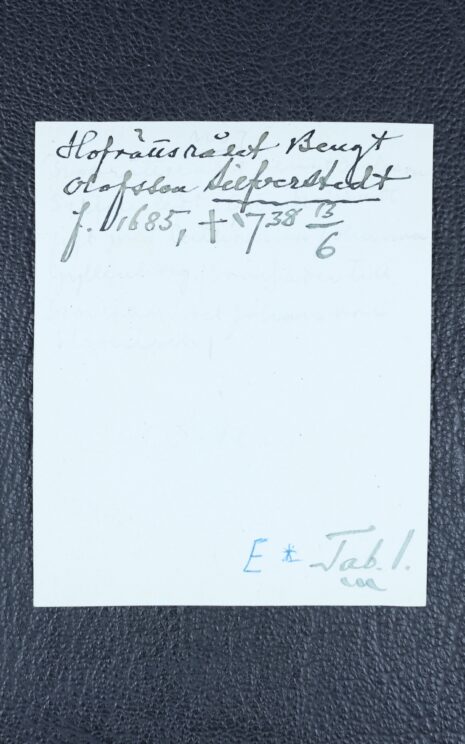 Hofrättsrådet Bengt
Olofsson Silfverstedt
f. 1685, † 1738 13/6
E * Tab. 1.